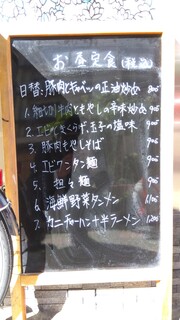 お昼定食(税込)
日替、豚肉とキャベツの正油炒め 900
1. 細切牛肉ともやしの辛味炒め 900
2. エビ、きくらげ、玉子の塩味 900
3. 豚肉もやしそば 900
4. エビワンタン麺 900
5. 担々麺 900
6. 海鮮野菜タンメン
7. カニチャーハン+半ラーメン